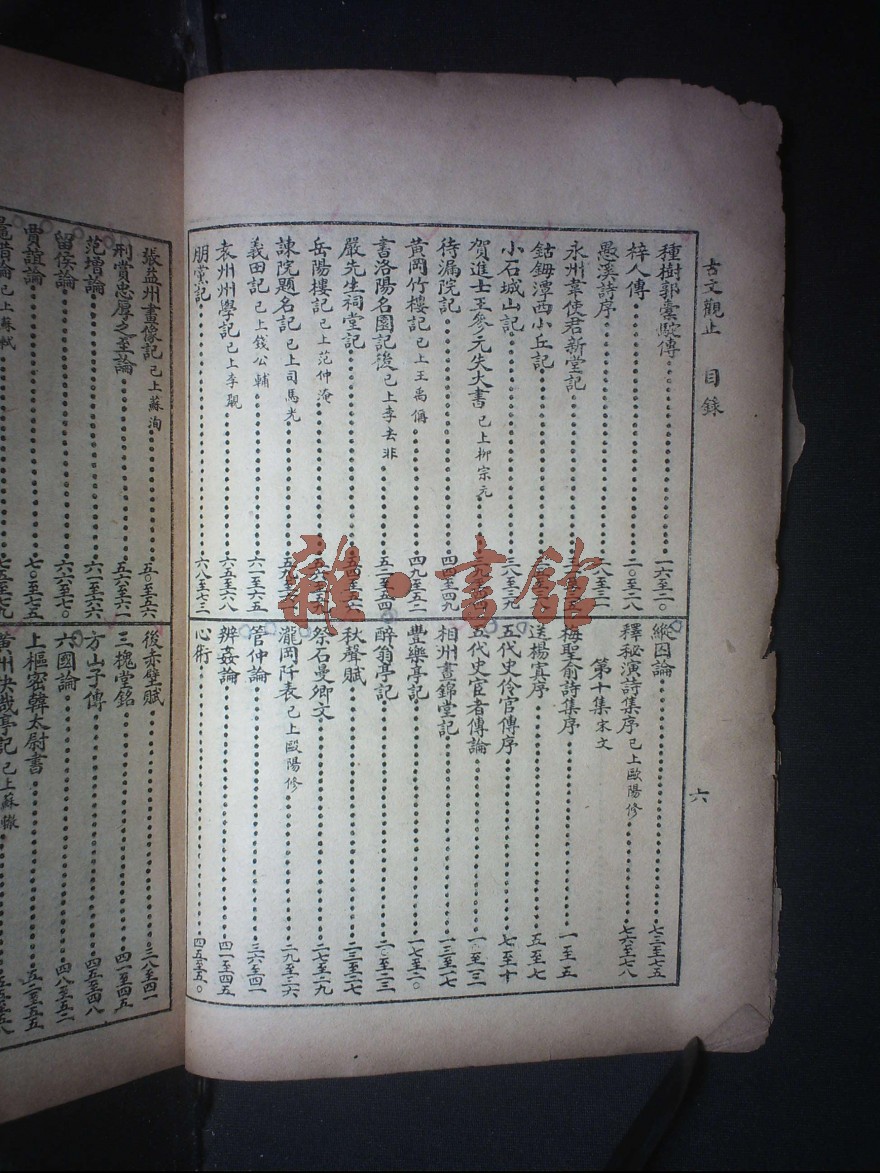 古文觀止　目錄
六
種樹郭橐駝傳 一六至二〇
梓人傳 二〇至二八
愚溪詩序 二八至三一
永州韋使君新堂記
鈷鉧潭西小丘記
小石城山記 三八至三九
賀進士王參元失火書 已上柳宗元
待漏院記 四四至四九
黃岡竹樓記 已上王禹偁 四九至五二
書洛陽名園記後 已上李去非 五二至五四
嚴先生祠堂記
岳陽樓記 已上范仲淹
諫院題名記 已上司馬光
義田記 已上錢公輔 六一至六五
袁州州學記 已上李覯 六五至六八
朋黨記 六八至七三
縱囚論 七三至七五
釋秘演詩集序 已上歐陽修 七六至七八
第十集 宋文
梅聖俞詩集序 一至五
送楊寘序 五至七
五代史伶官傳序 七至十
五代史宦者傳論
相州晝錦堂記 一三至一七
豐樂亭記 一七至二〇
醉翁亭記
秋聲賦 二三至二七
祭石曼卿文 二七至二九
瀧岡阡表 已上歐陽修 二九至三六
管仲論 三六至四一
辨姦論 四一至四五
心術 四五至五〇
張益州畫像記 已上蘇洵 五〇至五六
刑賞忠厚之至論 五六至六一
范增論 六一至六六
留侯論 六六至七〇
賈誼論 七〇至七五
鼂錯論 已上蘇軾 七五至七九
後赤壁賦 三八至四一
三槐堂銘 四一至四五
方山子傳 四五至四八
六國論 四八至五二
上樞密韓太尉書 五二至五五
黃州快哉亭記 已上蘇轍 五五至五八
雜·書館